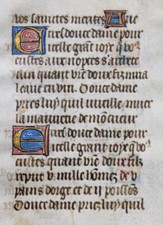 uos sainctes merites Aue
E t tres doulce dame pour
celle grant ioye que
eustes aux nopces
quant vre doulx filz
leaue en vin. Doulce dame
priez luy quil vueille muer
la mauuaitie de mon cueur
E t tres doulce dame pour
celle grant ioye que
eustes quant vre doulx filz
reput v. mille hommes de v
pains dorge et de ii poissons
Doulce dame priez luy quil